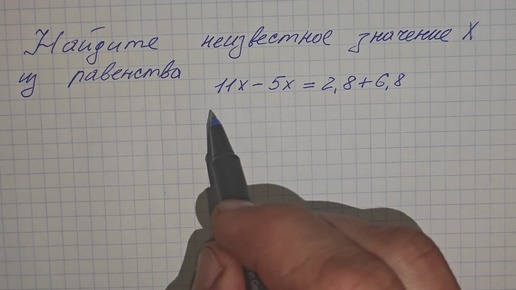 Найдите неизвестное значение X
из равенства 11x - 5x = 2,8 + 6,8